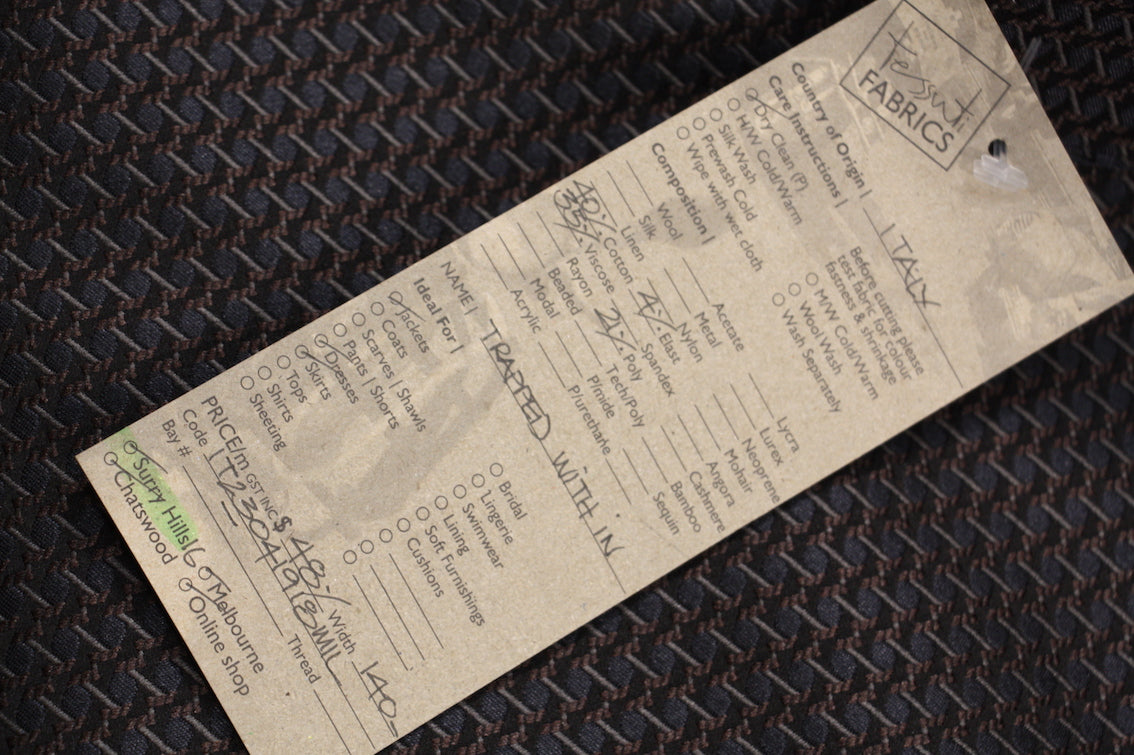 tessuti
FABRICS
Country of Origin | ITALY
Care Instructions |
Dry Clean (P)
H/W Cold/Warm
Silk Wash
Prewash Cold
Wipe with wet cloth
Before cutting please
test fabric for colour
fastness & shrinkage
M/W Cold/Warm
Wool Wash
Wash Separately
Composition |
Wool
Silk
Linen
40% Cotton
35% Viscose
Rayon
Beaded
Modal
Acrylic
Acetate
Metal
Nylon
4% Elast
Spandex
21% Poly
Tech/Poly
P/mide
P/urethane
Lycra
Lurex
Neoprene
Mohair
Angora
Cashmere
Bamboo
Sequin
NAME | TRAPPED WITH IN
Ideal For |
Jackets
Coats
Scarves | Shawls
Pants | Shorts
Dresses
Skirts
Tops
Shirts
Sheeting
Bridal
Lingerie
Swimwear
Lining
Soft Furnishings
Cushions
PRICE/m GST INC $ 48.- Width 140
Code IT23041918MIL
Bay # Thread
Surry Hills 6 Melbourne
Chatswood Online shop